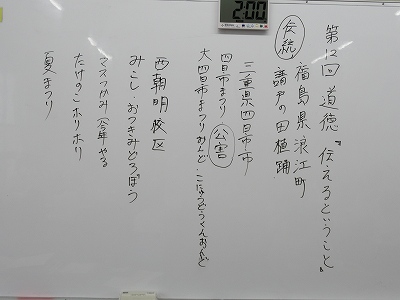 2:00
第12回 道徳『伝えるということ』
福島県浪江町
伝統 請戸の田植踊
三重県四日市市
四日市まつり 公害
大四日市まつりおどり・こにゅうどうくんおんど
西朝明校区
みこし おつきみどろぼう
マスつかみ 今年やる
たけのこホリホリ
夏まつり